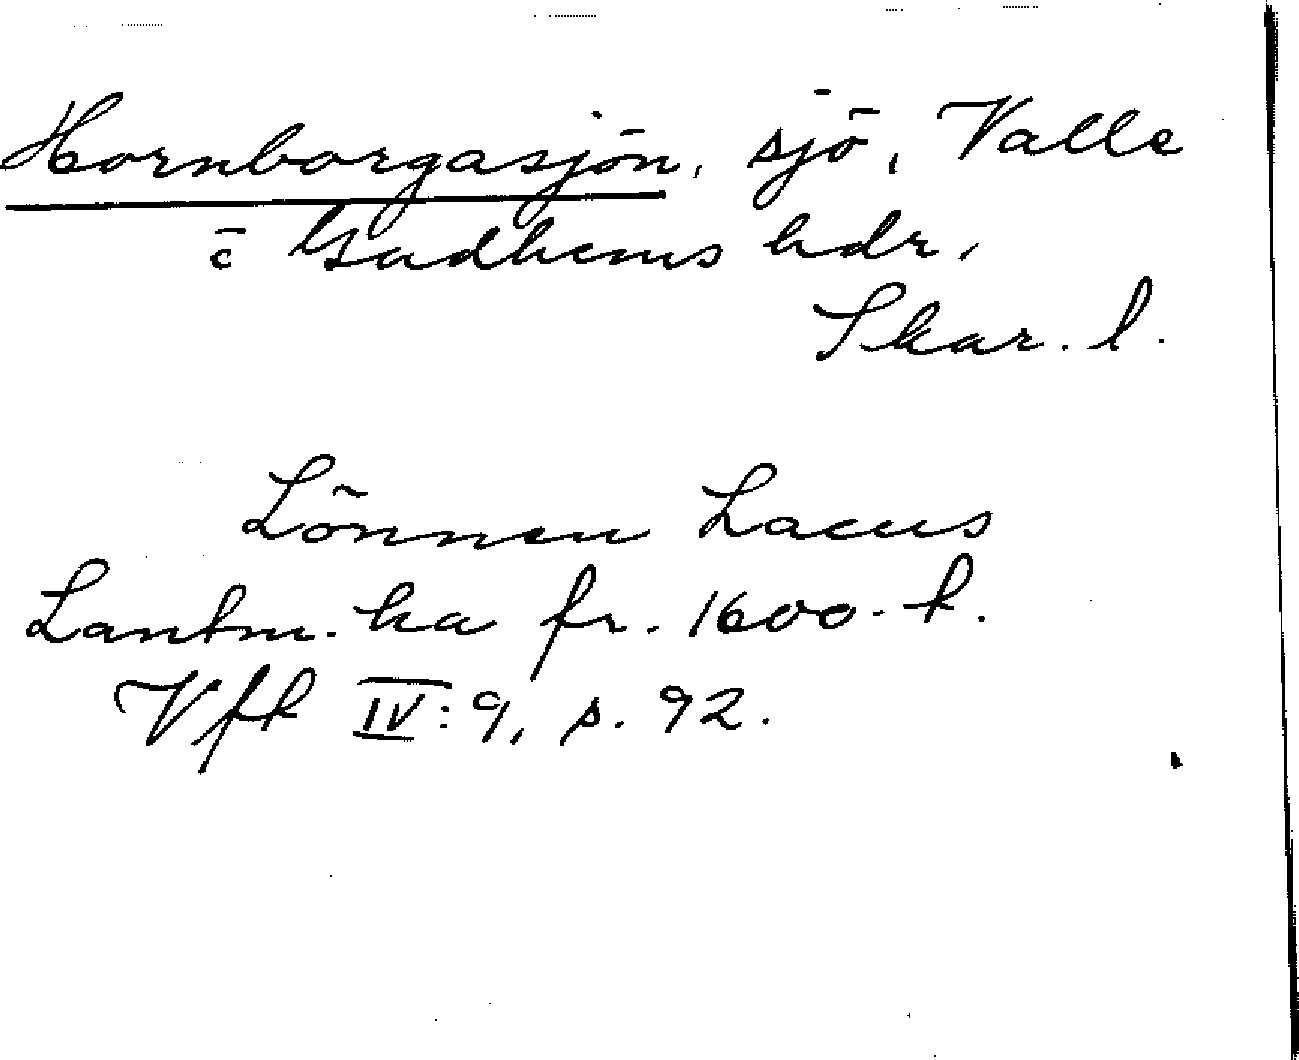 Hornborgasjön, sjö, Valle
o Gudhems hdr,
Skar. l.
Lönnen Lacus
Lantm. ka fr. 1600-t.
Vft IV:9, s. 92.